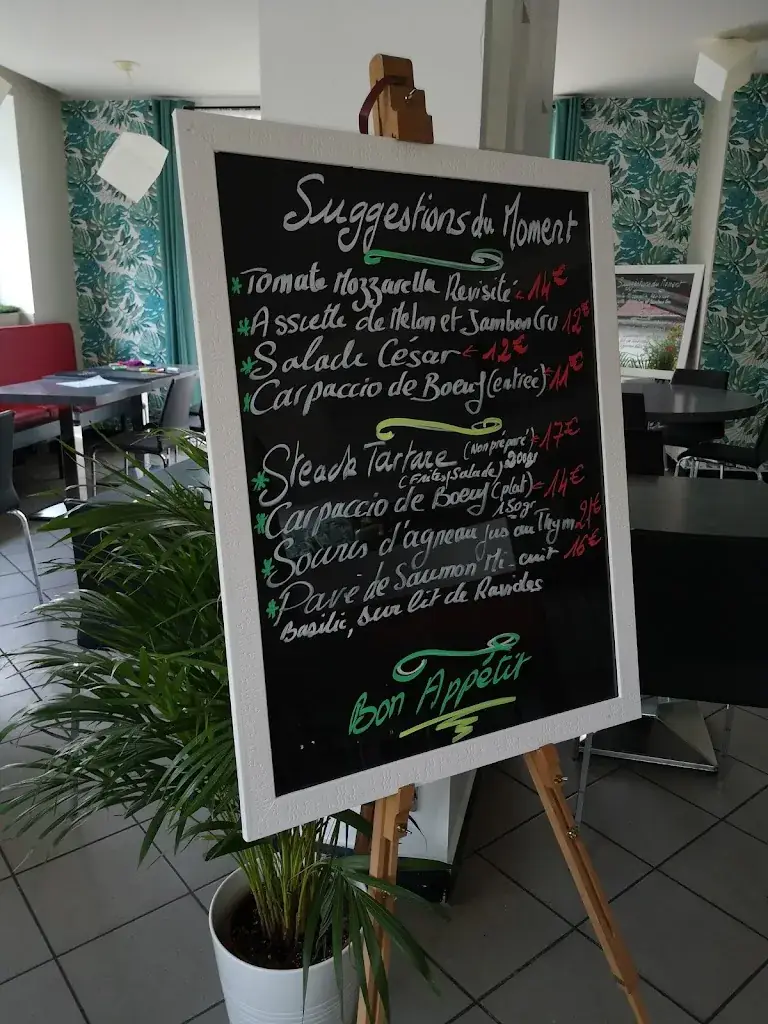 Suggestions du Moment
* Tomate Mozzarella Revisité 14€
* Assiette de Melon et Jambon Cru 12€
* Salade César 12€
* Carpaccio de Boeuf (entrée) 11€
* Steack Tartare (Non préparé) 17€
(Frites/Salade)
* Carpaccio de Boeuf (plat) 14€
150gr
* Souris d'agneau jus au Thym 21€
* Pavé de Saumon Mi-cuit 16€
Basilic, sur lit de Ravioles
Bon Appétit
Suggestions du Moment